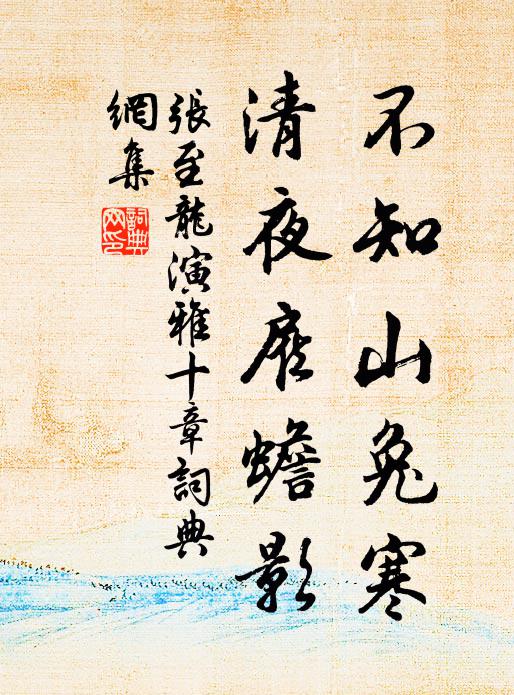 不知山兔寒
清夜雁蟾影
張至龍演雅十章詞典
網集
詞典
网印